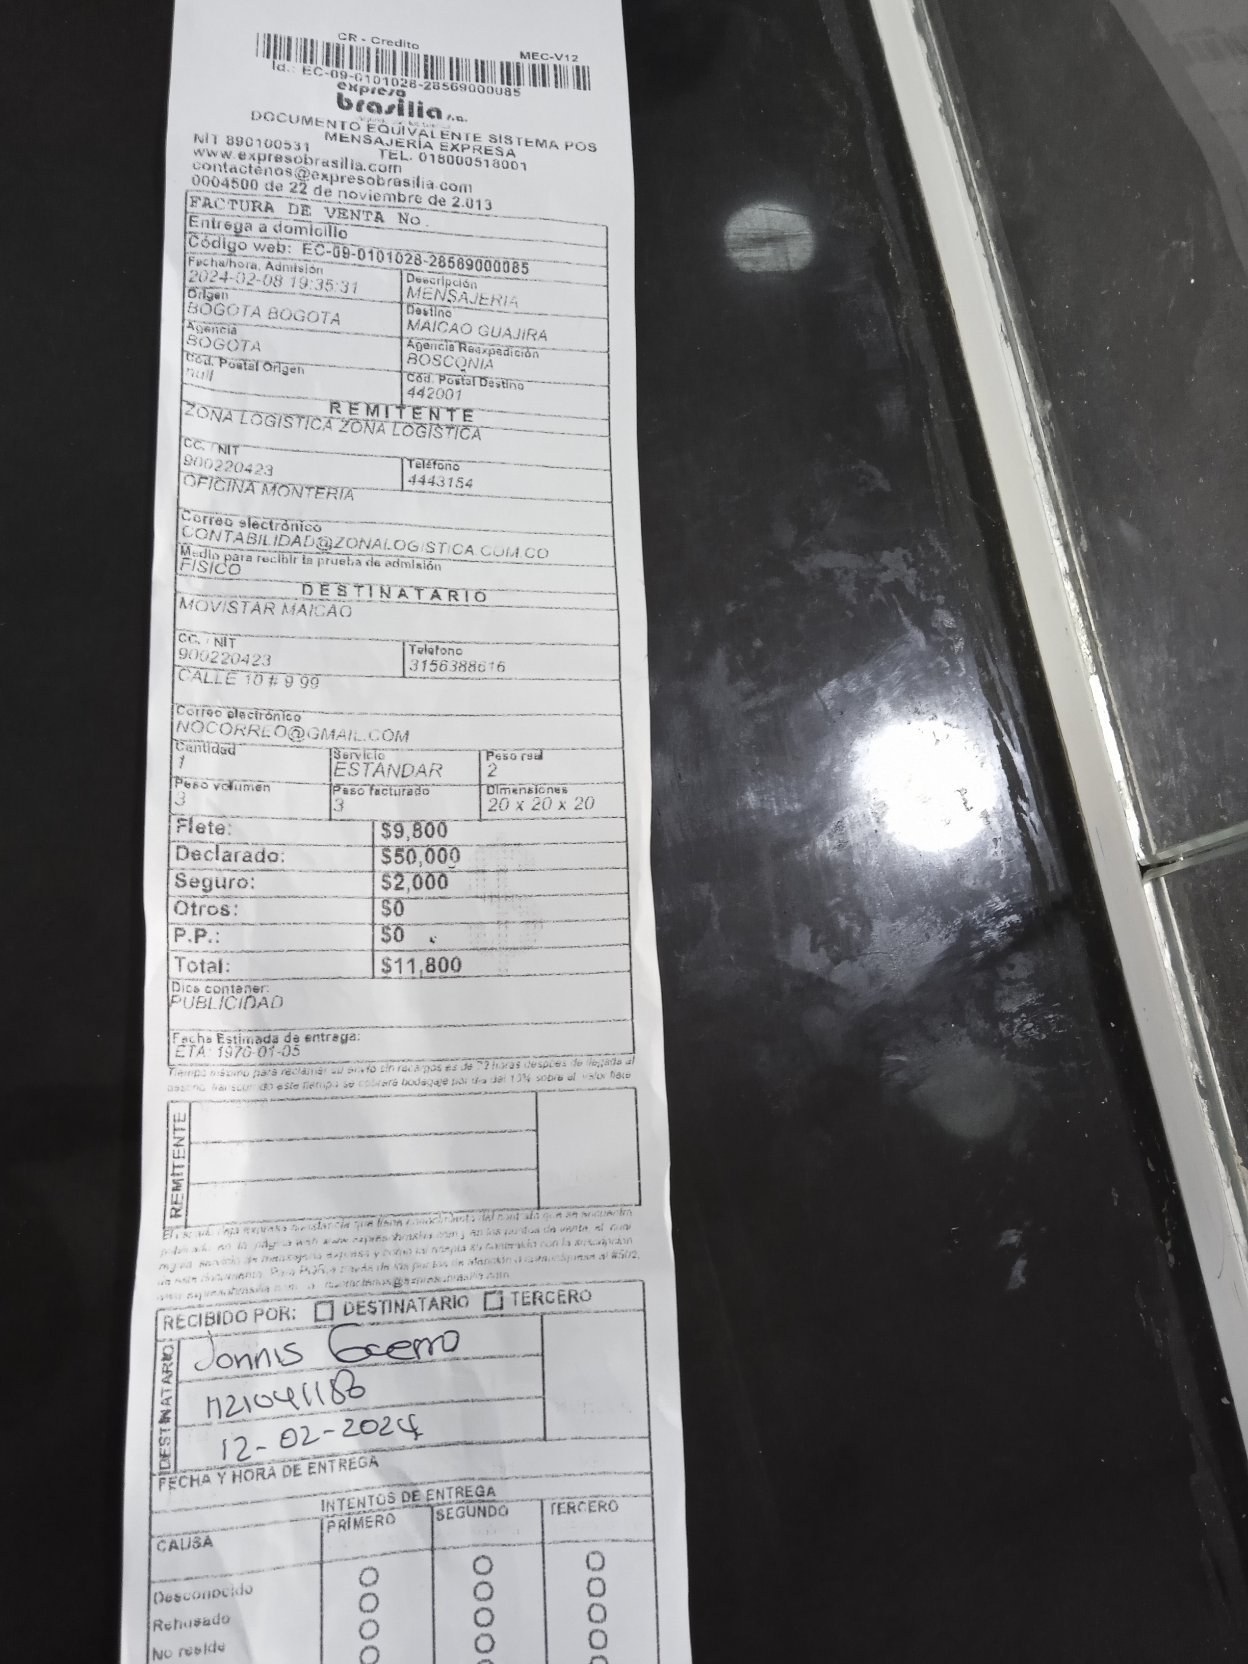 CR - Credito
MEC-V12
Id.: EC-09-0101028-28569000085
expreso
brasilia s.a.
DOCUMENTO EQUIVALENTE SISTEMA POS
MENSAJERÍA EXPRESA
NIT 890100531 TEL. 018000518001
www.expresobrasilia.com
contactenos@expresobrasilia.com
0004500 de 22 de noviembre de 2.013
FACTURA DE VENTA No.
Entrega a domicilio
Código web: EC-09-0101028-28569000085
Fecha/hora. Admisión Descripción
2024-02-08 19:35:31 MENSAJERIA
Origen Destino
BOGOTA BOGOTA MAICAO GUAJIRA
Agencia Agencia Reexpedición
BOGOTA BOSCONIA
Cód. Postal Origen Cód. Postal Destino
null 442001
REMITENTE
ZONA LOGISTICA ZONA LOGISTICA
CC. / NIT Teléfono
900220423 4443154
OFICINA MONTERIA
Correo electrónico
CONTABILIDAD@ZONALOGISTICA.COM.CO
Medio para recibir la prueba de admisión
FISICO
DESTINATARIO
MOVISTAR MAICAO
CC. / NIT Teléfono
900220423 3156388616
CALLE 10 # 9 99
Correo electrónico
NOCORREO@GMAIL.COM
Cantidad Servicio Peso real
1 ESTÁNDAR 2
Peso volumen Peso facturado Dimensiones
3 3 20 x 20 x 20
Flete: $9,800
Declarado: $50,000
Seguro: $2,000
Otros: $0
P.P.: $0
Total: $11,800
Dice contener:
PUBLICIDAD
Fecha Estimada de entrega:
ETA: 1970-01-05
Tiempo máximo para reclamar su envío sin recargos es de 72 horas después de llegada al
destino, transcurrido este tiempo se cobrará bodegaje por día del 10% sobre el valor flete
REMITENTE
RECIBIDO POR: DESTINATARIO TERCERO
DESTINATARIO
Jonnis
12-02-2024
FECHA Y HORA DE ENTREGA
INTENTOS DE ENTREGA
CAUSA PRIMERO SEGUNDO TERCERO
Desconocido
Rehusado
No reside